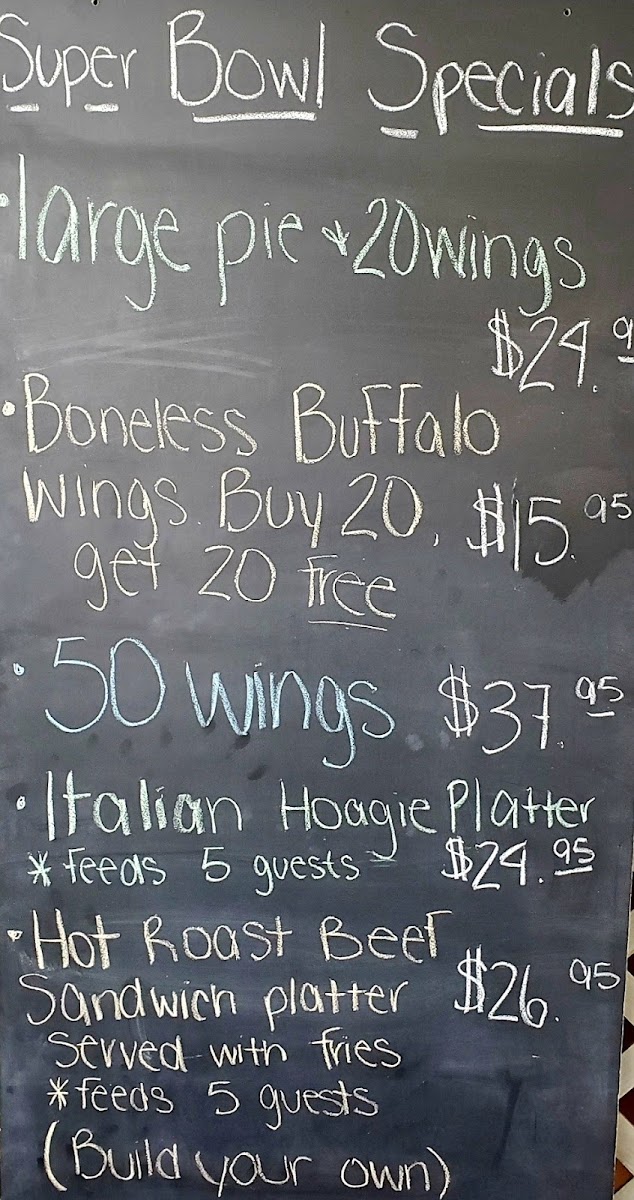 Super Bowl Specials
• large pie & 20 wings
$24.9
• Boneless Buffalo
wings. Buy 20, $15.95
get 20 free
• 50 wings $37.95
• Italian Hoagie Platter
* feeds 5 guests $24.95
• Hot Roast Beef
Sandwich platter $26.95
served with fries
* feeds 5 guests
(Build your own)